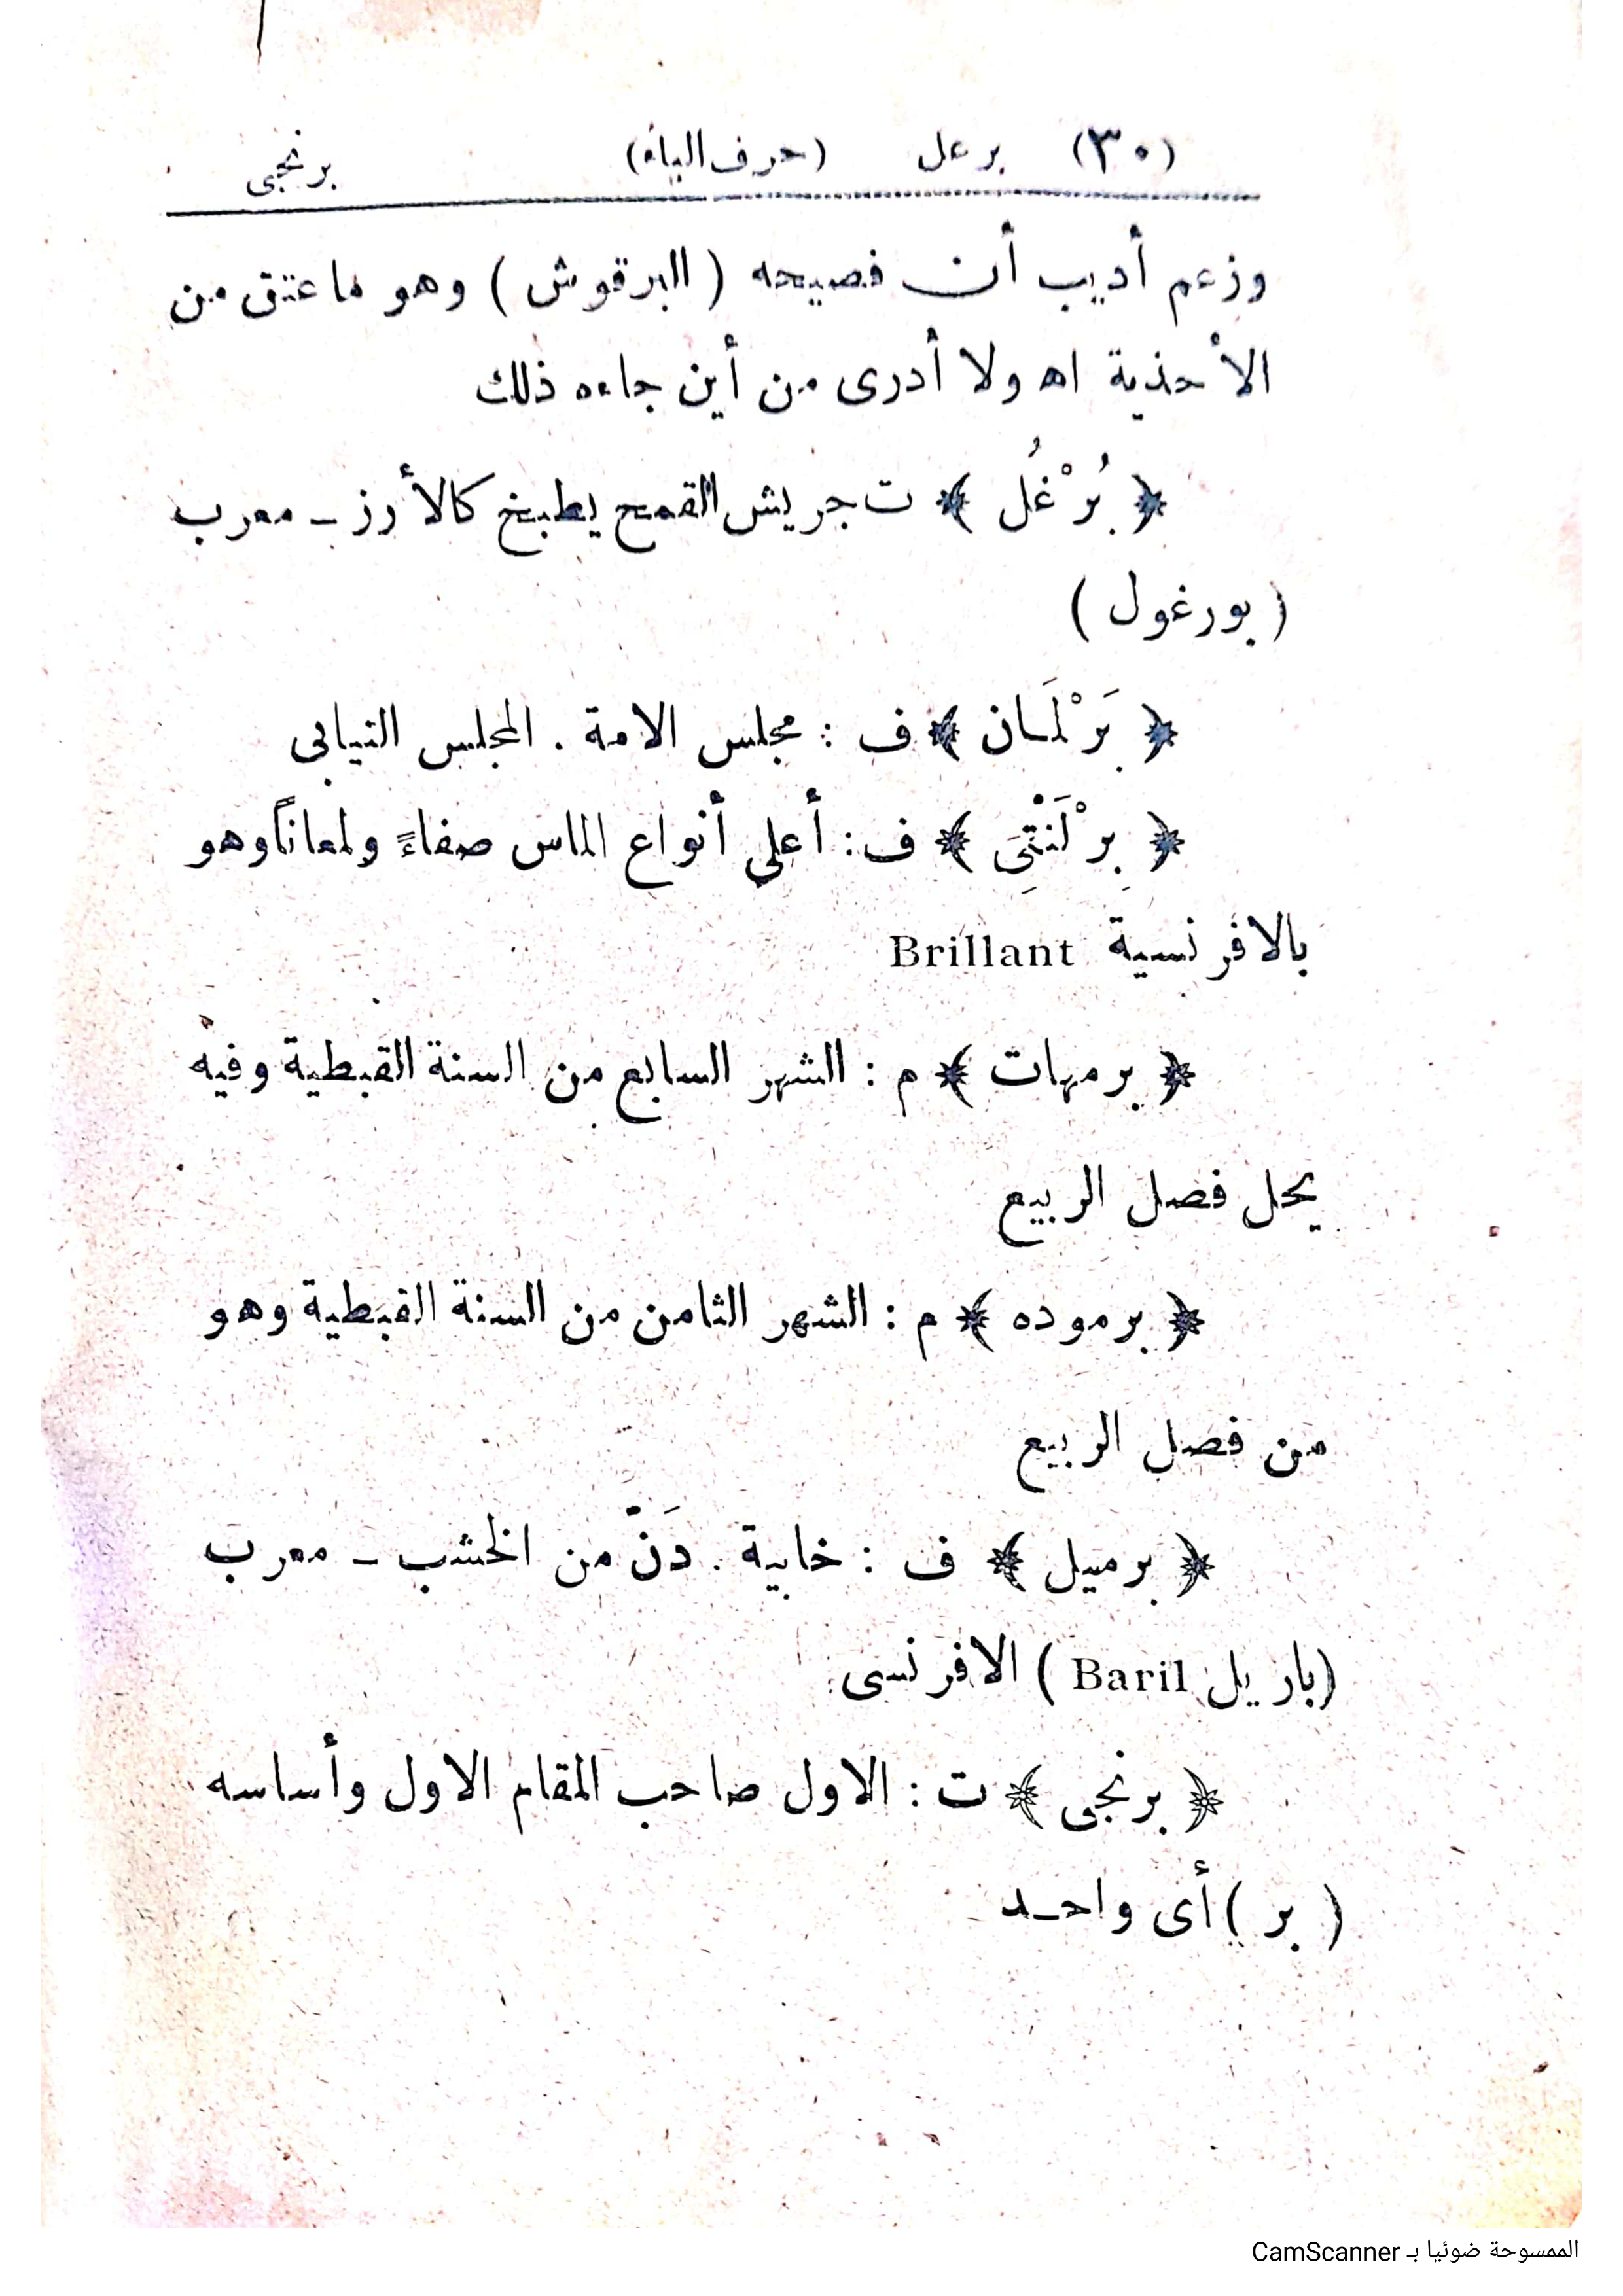 (٣٠) برعل (حرف الباء) برنجى
وزعم أديب أن فصيحه ( البرقوش ) وهو ما عتق من
الأحذية اه ولا أدرى من أين جاءه ذلك
﴿ بُرْغُل ﴾ ت جريش القمح يطبخ كالأرز ــ معرب
( بورغول )
﴿ بَرْلَمان ﴾ ف : مجلس الامة . المجلس النيابى
﴿ بِرْلَنْتِىَ ﴾ ف : أعلى أنواع الماس صفاءً ولمعاناً وهو
بالافرنسية Brillant
﴿ برمهات ﴾ م : الشهر السابع من السنة القبطية وفيه
يحل فصل الربيع
﴿ برموده ﴾ م : الشهر الثامن من السنة القبطية وهو
من فصل الربيع
﴿ برميل ﴾ ف : خابية . دَنّ من الخشب ــ معرب
(باريل Baril ) الافرنسى
﴿ برنجى ﴾ ت : الاول صاحب المقام الاول وأساسه
( بر ) أى واحـد
الممسوحة ضوئيا بـ CamScanner